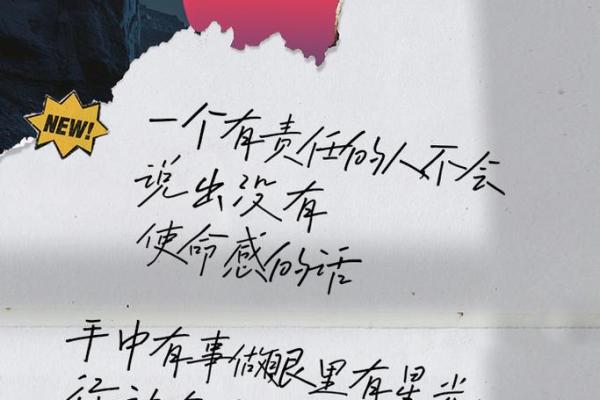 NEW!
一个有责任的人不会
说出没有
使命感的话
手中有事做眼里有星光
行